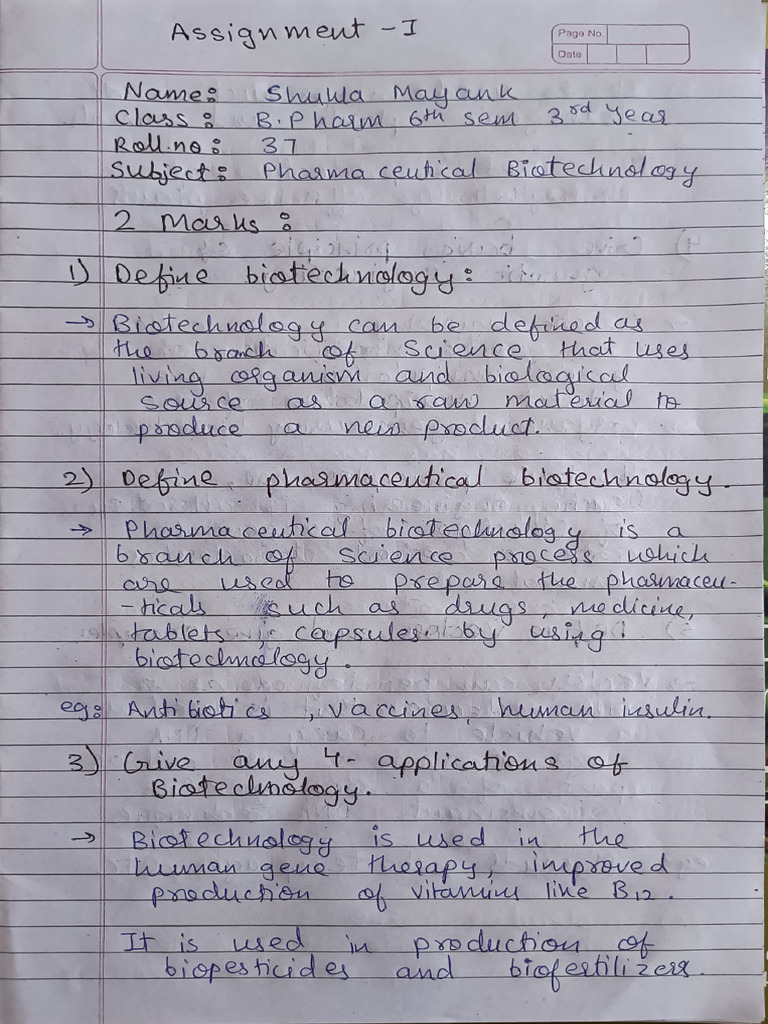 Assignment - I
Page No.
Date
Name: Shukla Mayank
Class: B.Pharm 6th sem 3rd Year
Roll.no: 37
Subject: Pharmaceutical Biotechnology
2 Marks:
1) Define biotechnology:
→ Biotechnology can be defined as
the branch of Science that uses
living organism and biological
source as a raw material to
produce a new product.
2) Define pharmaceutical biotechnology.
→ Pharmaceutical biotechnology is a
branch of Science process which
are used to prepare the pharmaceu-
-ticals such as drugs, medicine,
tablets, capsules by using
biotechnology.
eg: Antibiotics, vaccines, human insulin.
3) Give any 4- applications of
Biotechnology.
→ Biotechnology is used in the
human gene therapy, improved
production of vitamins like B12.
It is used in production of
biopesticides and biofertilizers.